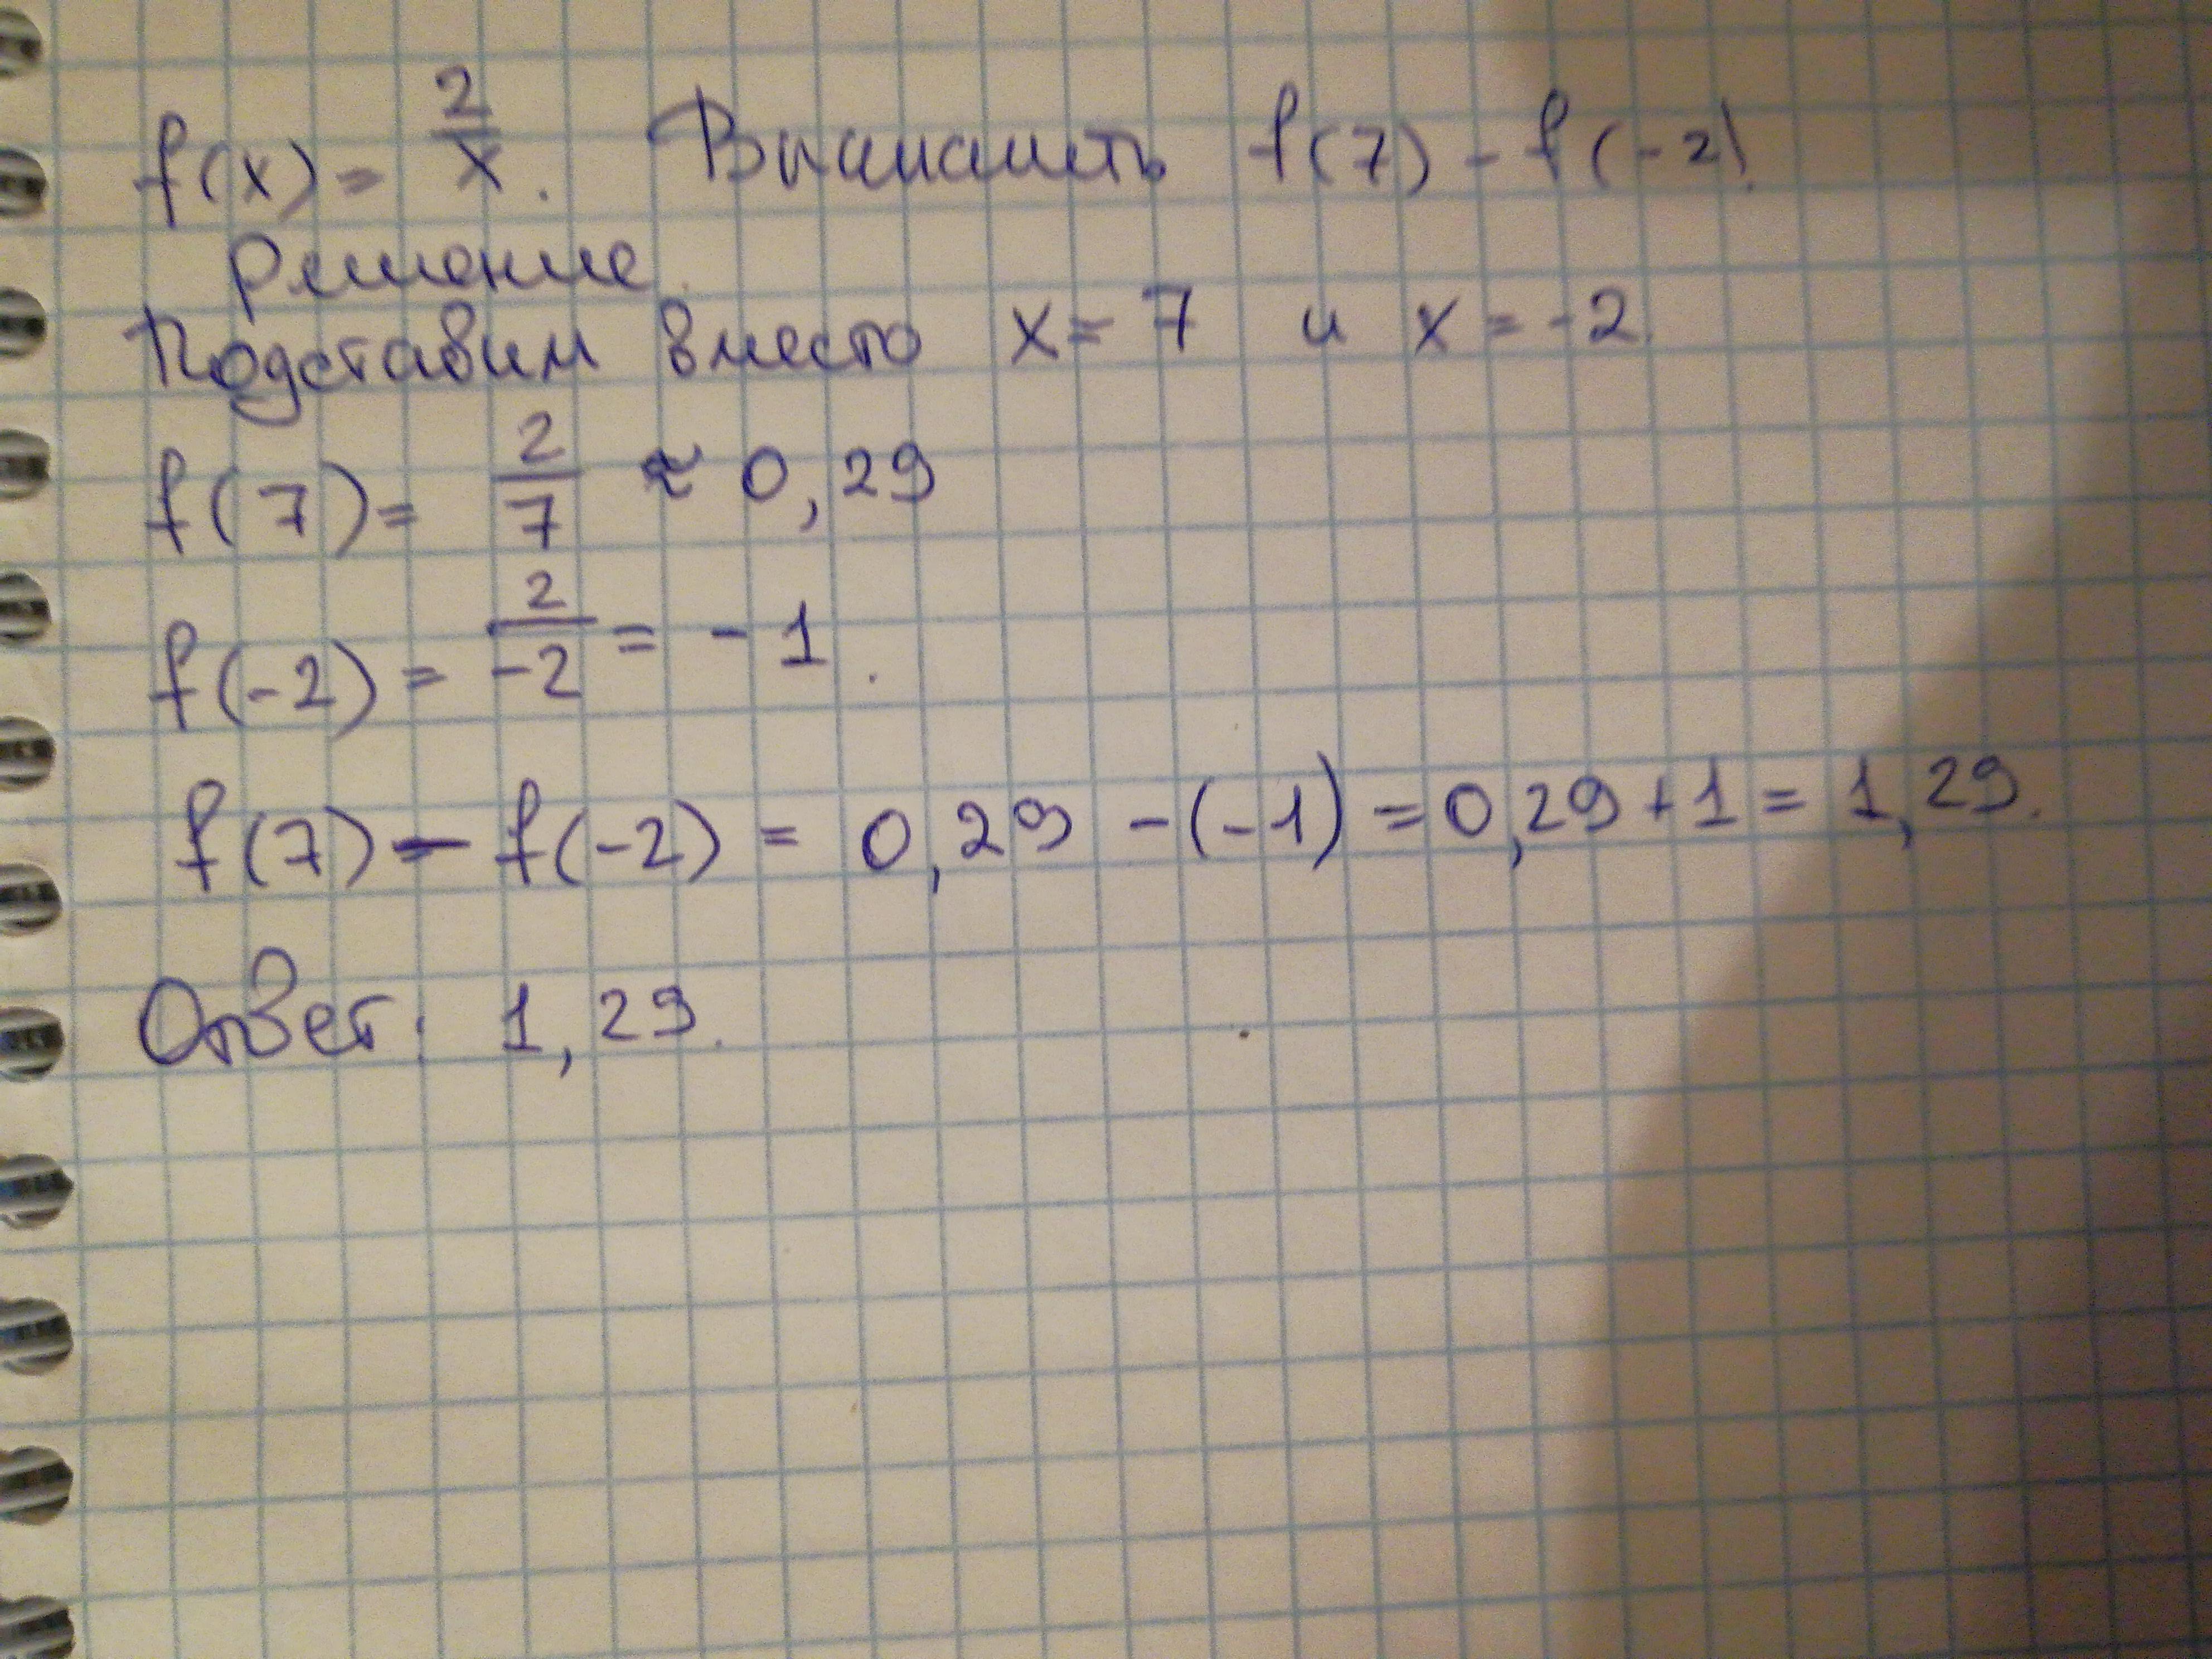 f(x) = 2/x. Вычислить f(7) - f(-2).
Решение.
Подставим вместо x = 7 и x = -2.
f(7) = 2/7 ≈ 0,29
f(-2) = 2/-2 = -1.
f(7) - f(-2) = 0,29 - (-1) = 0,29 + 1 = 1,29.
Ответ: 1,29.